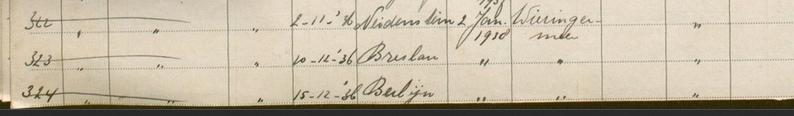 322 „ „ „ 2-11-'36 Neidenstein 2 Jan. Wieringer-
1938 meer „
323 „ „ „ 10-12-'36 Breslau „ „ „
324 „ „ „ 15-12-'36 Berlijn „ „ „